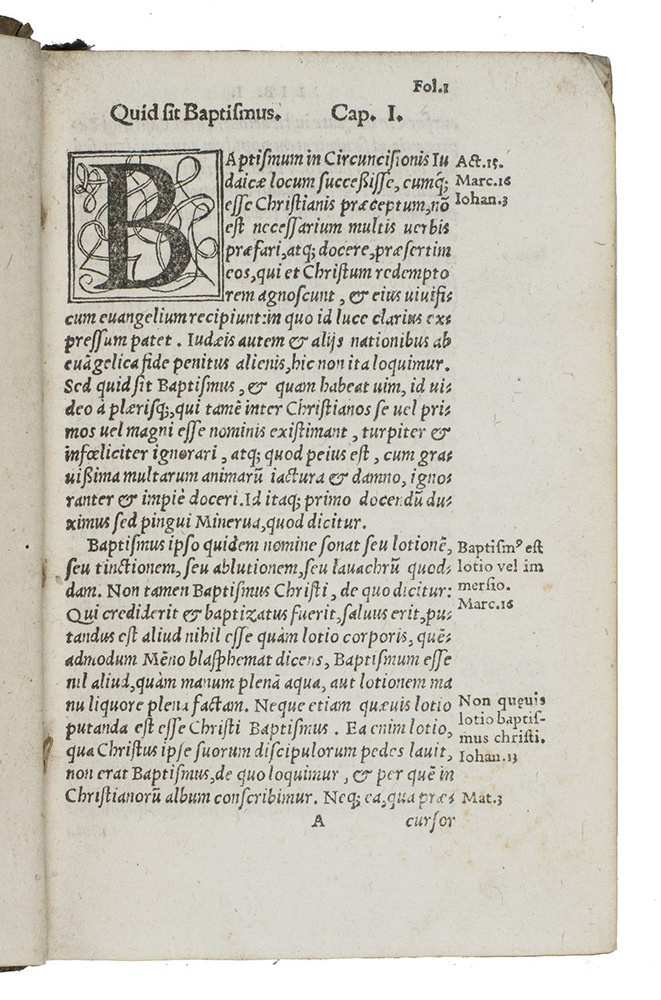 Fol.1
Quid sit Baptismus. Cap. I.
BAptismum in Circuncisionis Iu
daicæ locum successisse, cumq;
esse Christianis præceptum, nō
est necessarium multis uerbis
præfari, atq; docere, præsertim
eos, qui et Christum redempto
rem agnoscunt, & eius uiuifi-
cum euangelium recipiunt: in quo id luce clarius ex-
pressum patet. Iudæis autem & alijs nationibus ab
euāgelica fide penitus alienis, hic non ita loquimur.
Sed quid sit Baptismus, & quam habeat uim, id ui-
deo à plærisq;, qui tamē inter Christianos se uel pri-
mos uel magni esse nominis existimant, turpiter &
infœliciter ignorari, atq; quod peius est, cum gra-
uißima multarum animarū iactura & damno, igno-
ranter & impiè doceri. Id itaq; primo docendū du-
ximus sed pingui Minerua, quod dicitur.
Baptismus ipso quidem nomine sonat seu lotionē,
seu tinctionem, seu ablutionem, seu lauachrū quod-
dam. Non tamen Baptismus Christi, de quo dicitur:
Qui crediderit & baptizatus fuerit, saluus erit, pu-
tandus est aliud nihil esse quàm lotio corporis, quē-
admodum Mēno blasphemat dicens, Baptismum esse
nil aliud, quàm manum plenā aqua, aut lotionem ma
nu liquore plena factam. Neque etiam quæuis lotio
putanda est esse Christi Baptismus. Ea enim lotio,
qua Christus ipse suorum discipulorum pedes lauit,
non erat Baptismus, de quo loquimur, & per quē in
Christianorū album conscribimur. Neq; ea, qua præ-
A cursor
Act.15.
Marc.16
Iohan.3
Baptism⁹ est
lotio vel im
mersio.
Marc.16
Non queuis
lotio baptis-
mus christi.
Iohan.13
Mat.3